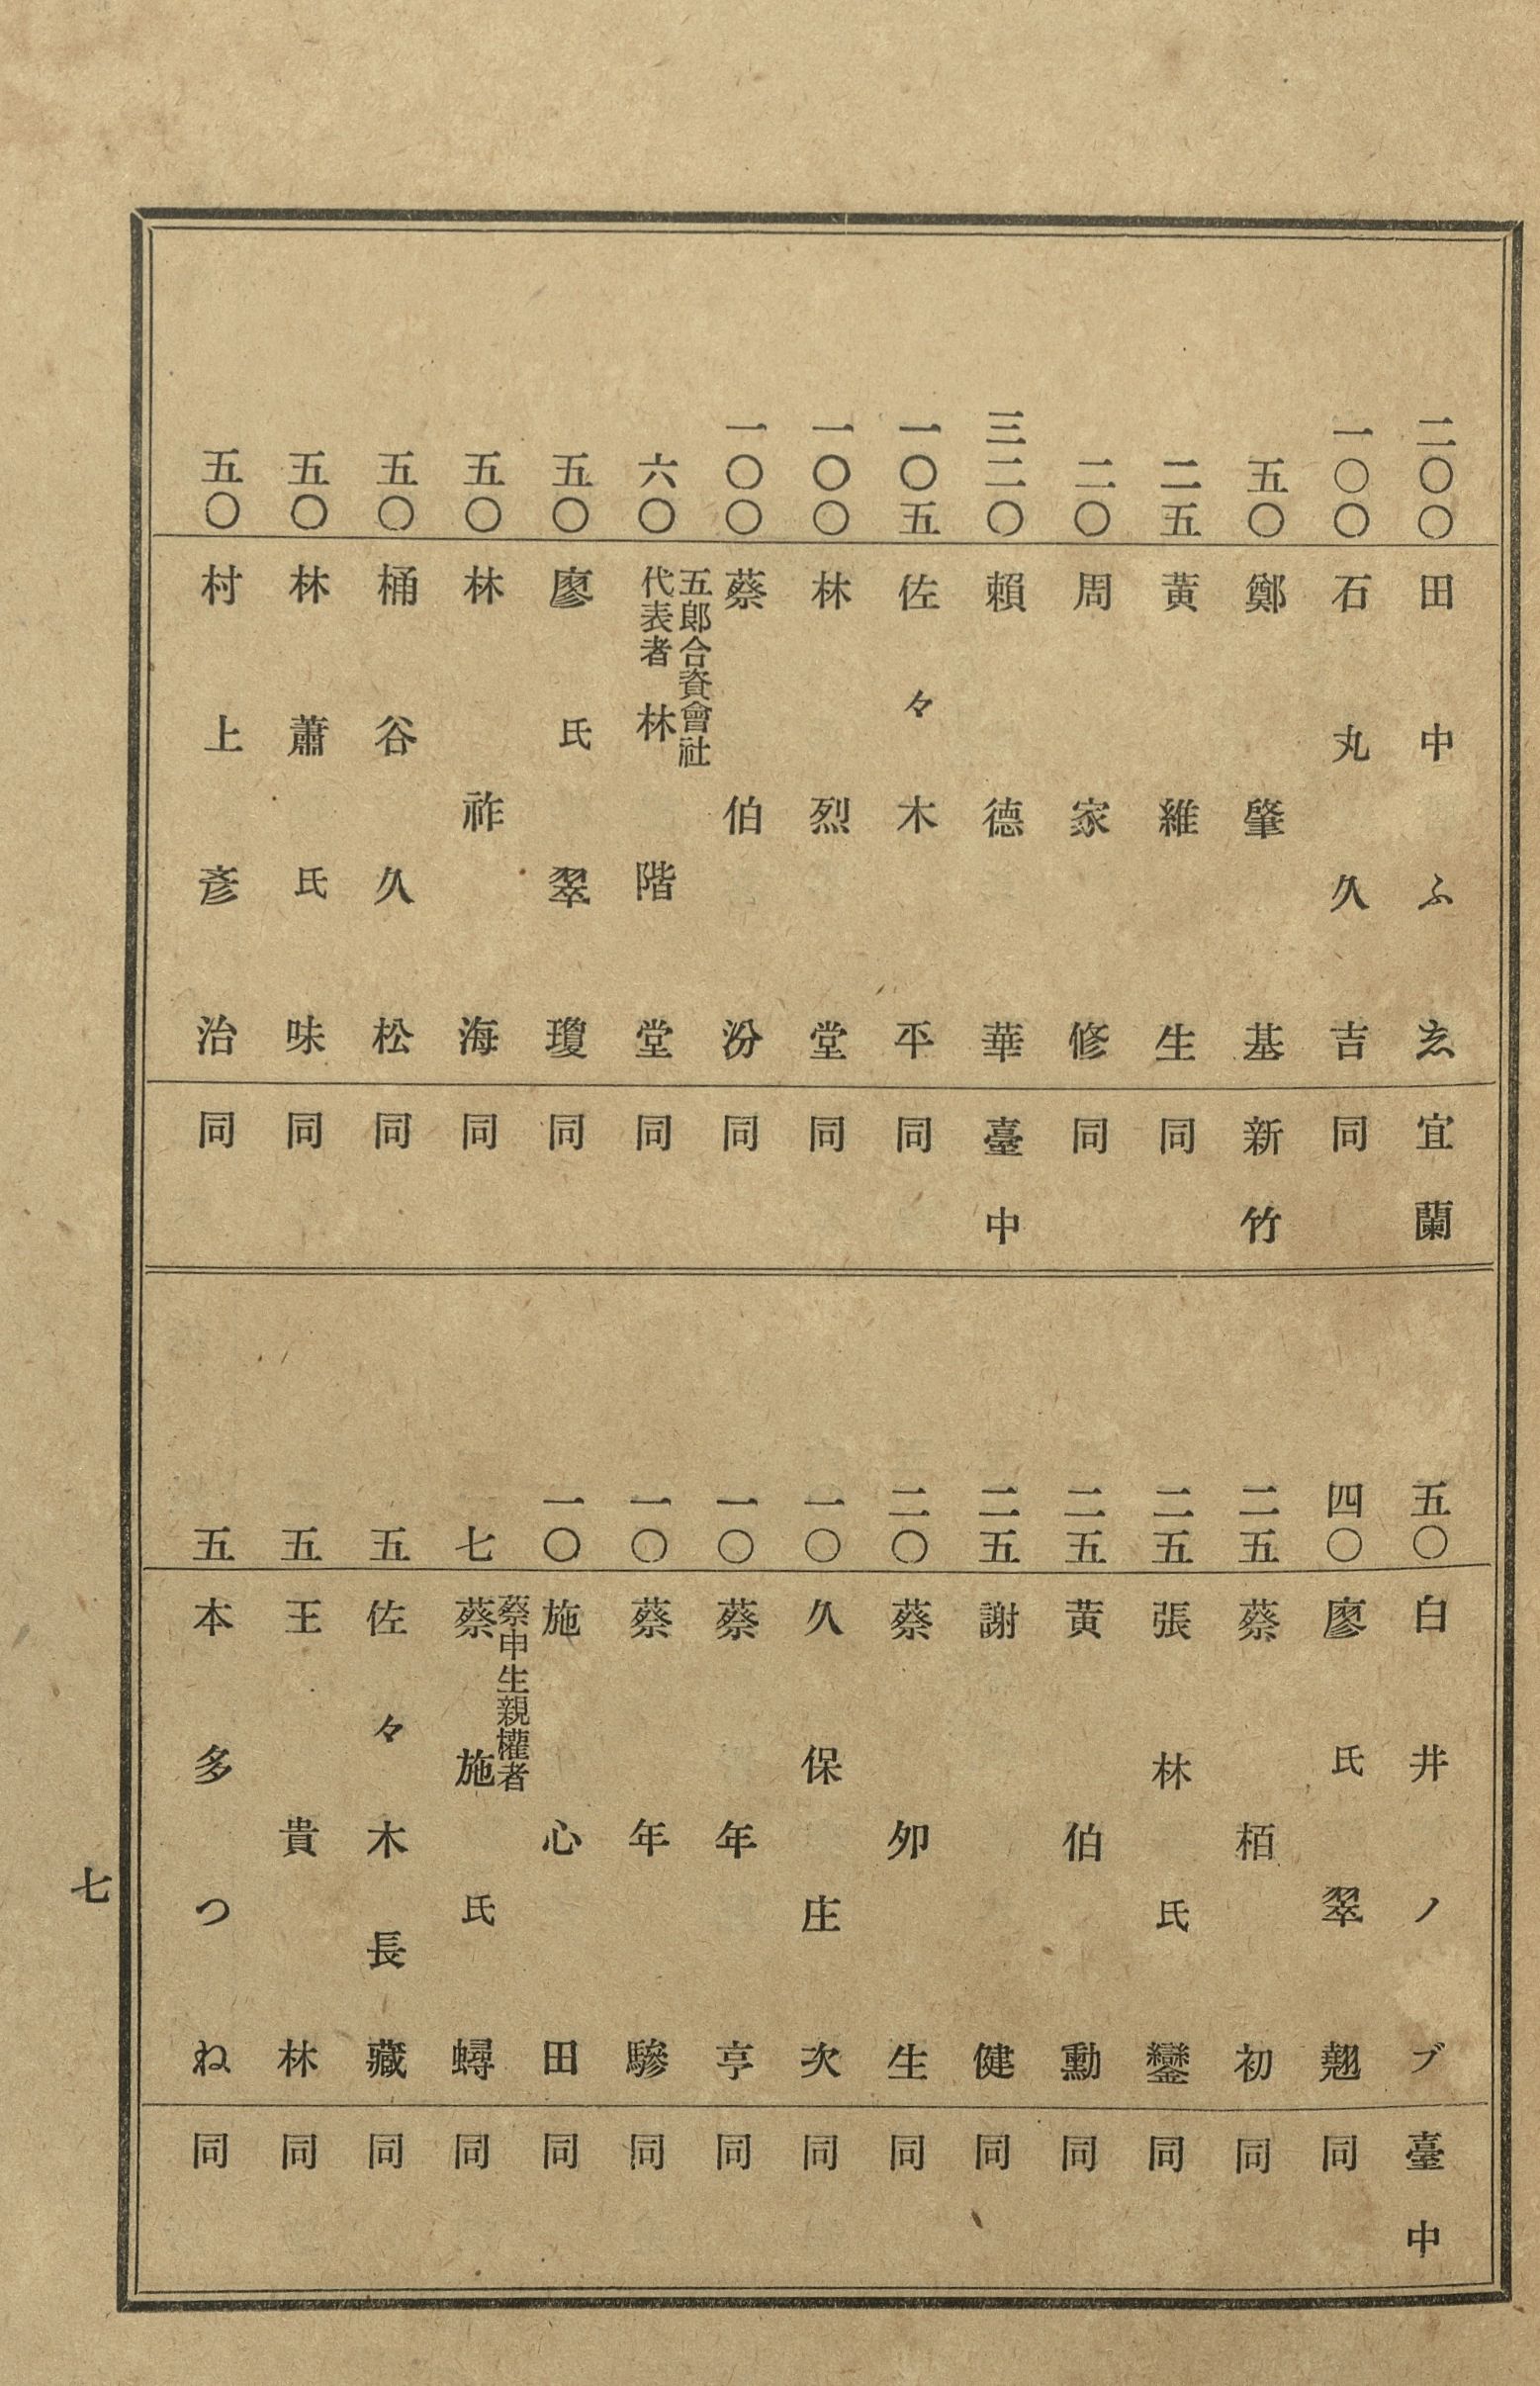 二〇〇 田中ふゑ 宜蘭
一〇〇 石丸久吉 同
五〇 鄭肇基 新竹
二五 黃維生 同
二〇 周家修 同
三二〇 賴德華 臺中
一〇五 佐々木平 同
一〇〇 林烈堂 同
一〇〇 蔡伯汾 同
五郎合資會社
六〇 代表者 林階堂 同
五〇 廖氏翠瓊 同
五〇 林祚海 同
五〇 桶谷久松 同
五〇 林蕭氏味 同
五〇 村上彥治 同
五〇 白井ノブ 臺中
四〇 廖氏翠翹 同
二五 蔡栢初 同
二五 張林氏鑾 同
二五 黃伯勳 同
二五 謝健 同
二〇 蔡夘生 同
一〇 久保庄次 同
一〇 蔡年亨 同
一〇 蔡年驂 同
一〇 施心田 同
蔡申生親權者
七 蔡施氏蟳 同
五 佐々木長藏 同
五 王貴林 同
五 本多つね 同
七